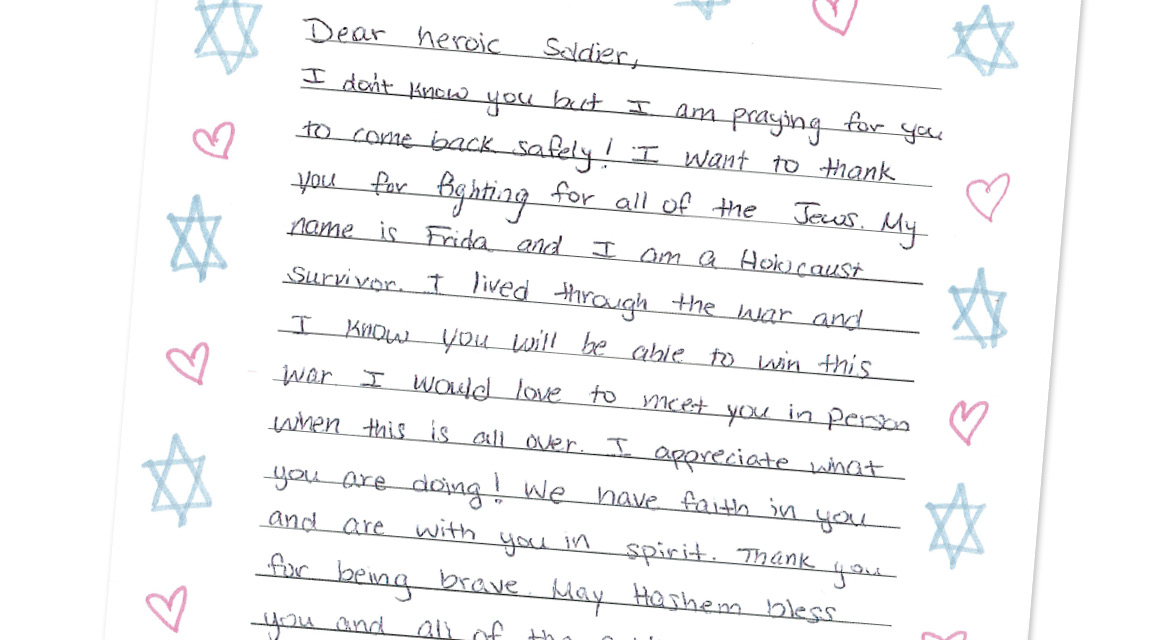 Dear heroic Soldier,
I don't know you but I am praying for you
to come back safely! I want to thank
you for fighting for all of the Jews. My
name is Frida and I am a Holocaust
survivor. I lived through the war and
I know you will be able to win this
war I would love to meet you in person
when this is all over. I appreciate what
you are doing! We have faith in you
and are with you in spirit. Thank you
for being brave. May Hashem bless
you and all of the